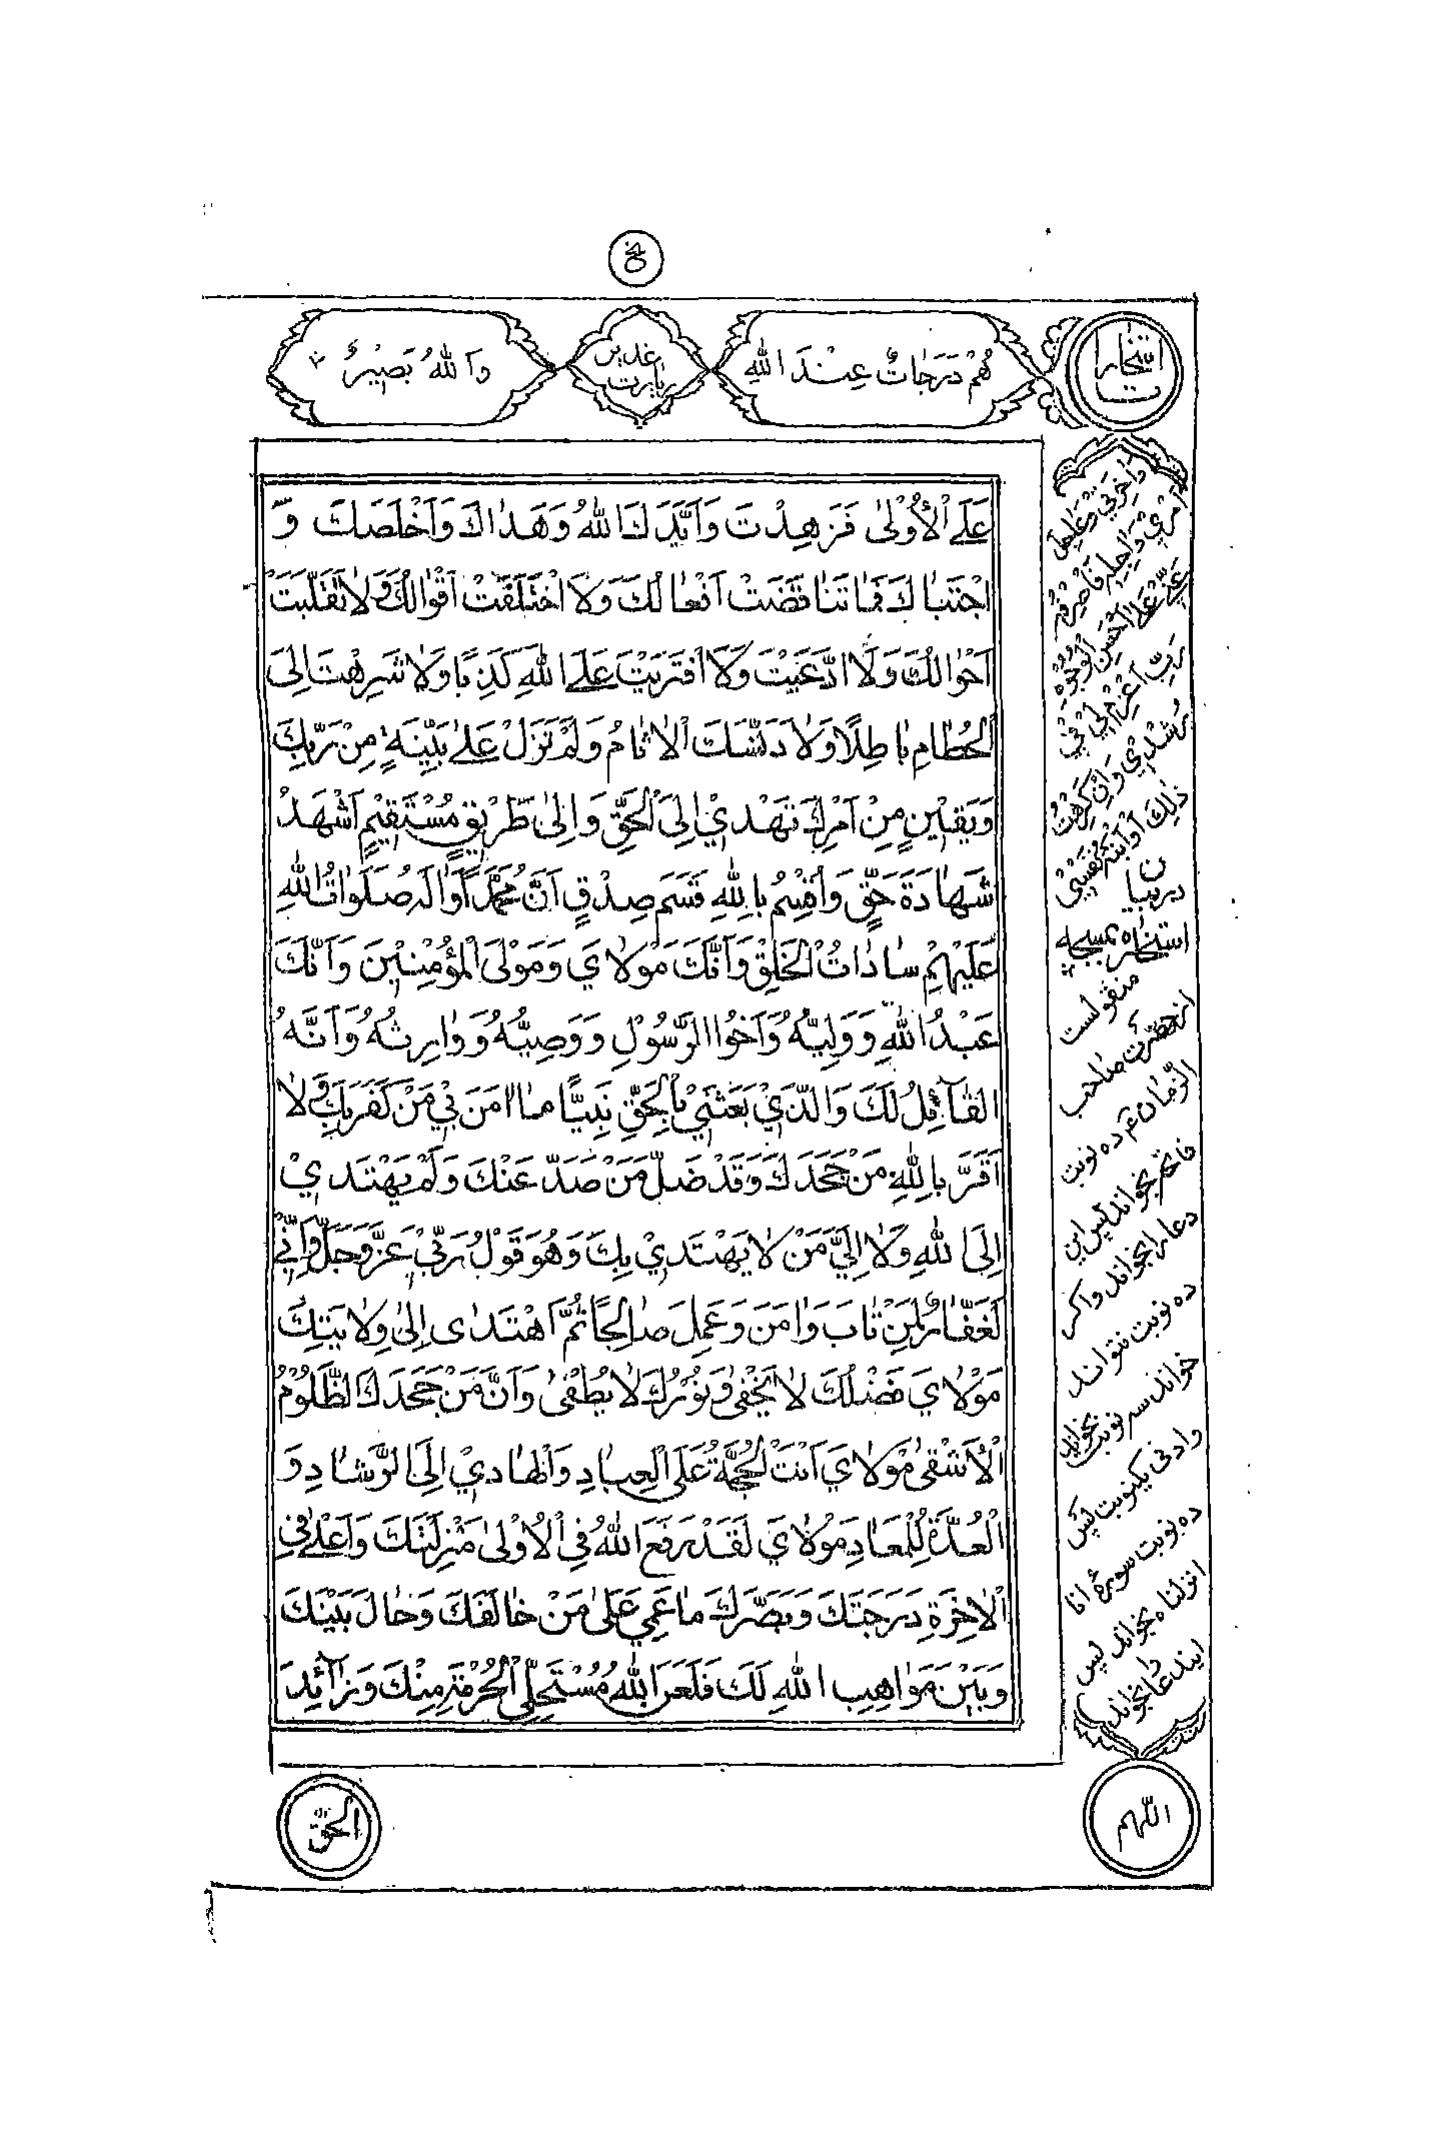 هُمْ دَرَجَاتٌ عِنْدَ اللهِ
زیارت غدیر
وَاللهُ بَصِيْرٌ
عَلَى الْأُوْلٰى فَزَهِدْتَ وَاَيَّدَكَ اللهُ وَهَدٰاكَ وَاَخْلَصَكَ وَ
اجْتَبٰاكَ فَمٰا تَنٰاقَضَتْ اَفْعٰالُكَ وَلَا اخْتَلَفَتْ اَقْوٰالُكَ وَلٰا تَقَلَّبَتْ
اَحْوٰالُكَ وَلَا ادَّعَيْتَ وَلَا افْتَرَيْتَ عَلَى اللهِ كَذِبًا وَلٰا شَرِهْتَ اِلَى
الْحُطٰامِ بٰاطِلًا وَلٰا دَنَّسَكَ الْاٰثٰامُ وَلَمْ تَزَلْ عَلٰى بَيِّنَةٍ مِنْ رَبِّكَ
وَيَقِيْنٍ مِنْ اَمْرِكَ تَهْدِيْ اِلَى الْحَقِّ وَاِلٰى طَرِيْقٍ مُسْتَقِيْمٍ اَشْهَدُ
شَهٰادَةَ حَقٍّ وَاُقْسِمُ بِاللهِ قَسَمَ صِدْقٍ اَنَّ مُحَمَّدًا وَاٰلَهُ صَلَوٰاتُ اللهِ
عَلَيْهِمْ سٰادٰاتُ الْخَلْقِ وَاَنَّكَ مَوْلٰايَ وَمَوْلَى الْمُؤْمِنِيْنَ وَاَنَّكَ
عَبْدُ اللهِ وَوَلِيُّهُ وَاَخُوا الرَّسُوْلِ وَوَصِيُّهُ وَوٰارِثُهُ وَاَنَّهُ
الْقٰآئِلُ لَكَ وَالَّذِيْ بَعَثَنِيْ بِالْحَقِّ نَبِيًّا مٰا اٰمَنَ بِيْ مَنْ كَفَرَ بِكَ وَلٰا
اَقَرَّ بِاللهِ مَنْ جَحَدَكَ وَقَدْ ضَلَّ مَنْ صَدَّ عَنْكَ وَلَمْ يَهْتَدِيْ
اِلَى اللهِ وَلٰا اِلَيَّ مَنْ لٰا يَهْتَدِيْ بِكَ وَهُوَ قَوْلُ رَبِّيْ عَزَّ وَجَلَّ وَاِنِّيْ
لَغَفّٰارٌ لِمَنْ تٰابَ وَاٰمَنَ وَعَمِلَ صٰالِحًا ثُمَّ اهْتَدٰى اِلٰى وِلٰايَتِكَ
مَوْلٰايَ فَضْلُكَ لٰا يَخْفٰى وَنُوْرُكَ لٰا يُطْفٰى وَاَنَّ مَنْ جَحَدَكَ الظَّلُوْمُ
الْأَشْقٰى مَوْلٰايَ اَنْتَ الْحُجَّةُ عَلَى الْعِبٰادِ وَالْهٰادِيْ اِلَى الرَّشٰادِ وَ
الْعُدَّةُ لِلْمَعٰادِ مَوْلٰايَ لَقَدْ رَفَعَ اللهُ فِي الْاُوْلٰى مَنْزِلَتَكَ وَاَعْلٰى فِي
الْاٰخِرَةِ دَرَجَتَكَ وَبَصَّرَكَ مٰا عَمِيَ عَلٰى مَنْ خٰالَفَكَ وَحٰالَ بَيْنَكَ
وَبَيْنَ مَوٰاهِبِ اللهِ لَكَ فَلَعَنَ اللهُ مُسْتَحِلِّي الْحُرْمَةِ مِنْكَ وَذٰآئِدِ
رَبِّ اَعْزِمْ لِيْ فِيْ
رُشْدِيْ وَاِنْ كَرِهَتْ
ذٰلِكَ اَوْ اَبَتْهُ نَفْسِيْ
در بیان
استخاره تسبیح
منقولست
از حضرت صاحب
الزمان ع ده نوبت
فاتحه بخواند پس این
دعا را بخواند و اگر
ده نوبت نتواند
خواند سه نوبت بخواند
وادنی یکنوبت پس
ده نوبت سورهٔ انا
انزلناه بخواند پس
ایندعا را بخواند
اللّهم
الحقّ